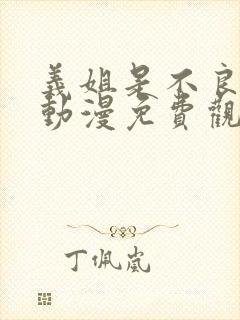 義姐是不良
動漫免費觀
丁佩嵐